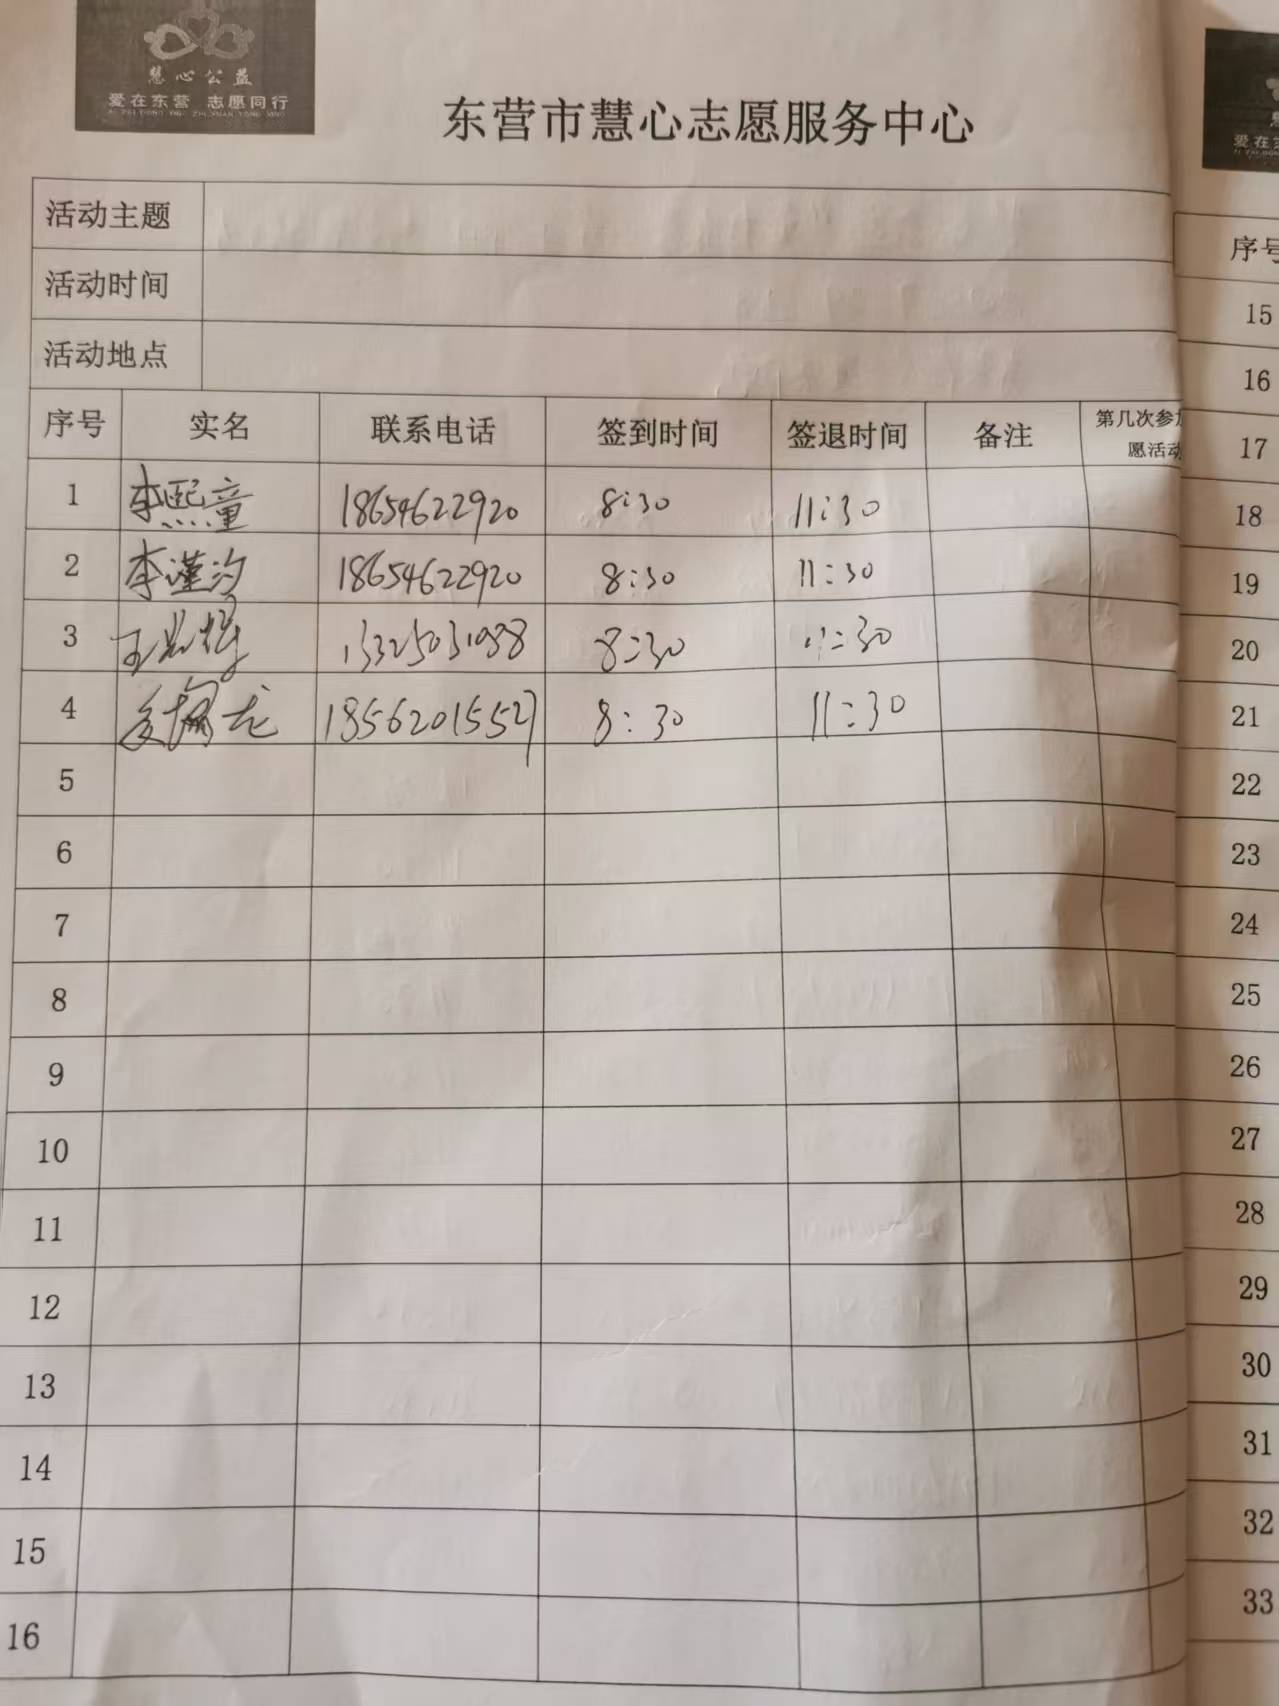 慧心公益
爱在东营 志愿同行
东营市慧心志愿服务中心
爱在
活动主题
活动时间
活动地点
序号 实名 联系电话 签到时间 签退时间 备注 第几次参加
愿活动
1 李熙童 18654622920 8:30 11:30
2 李谨汐 18654622920 8:30 11:30
3 王 13325031988 8:30 11:30
4 龙 18562015527 8:30 11:30
5
6
7
8
9
10
11
12
13
14
15
16
序号
15
16
17
18
19
20
21
22
23
24
25
26
27
28
29
30
31
32
33